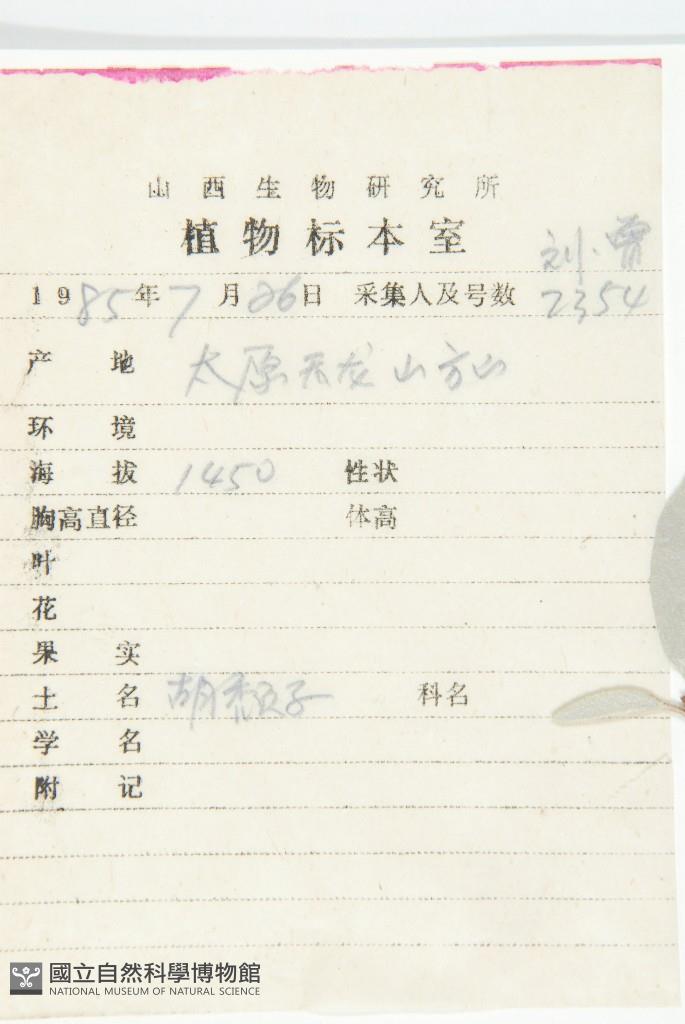 山西生物研究所
植物标本室
刘、曾
1985年7月26日 采集人及号数 2354
产地 太原天龙山方山
环境
海拔 1450 性状
胸高直径 体高
叶
花
果实
土名 胡秃子 科名
学名
附记
國立自然科學博物館
NATIONAL MUSEUM OF NATURAL SCIENCE